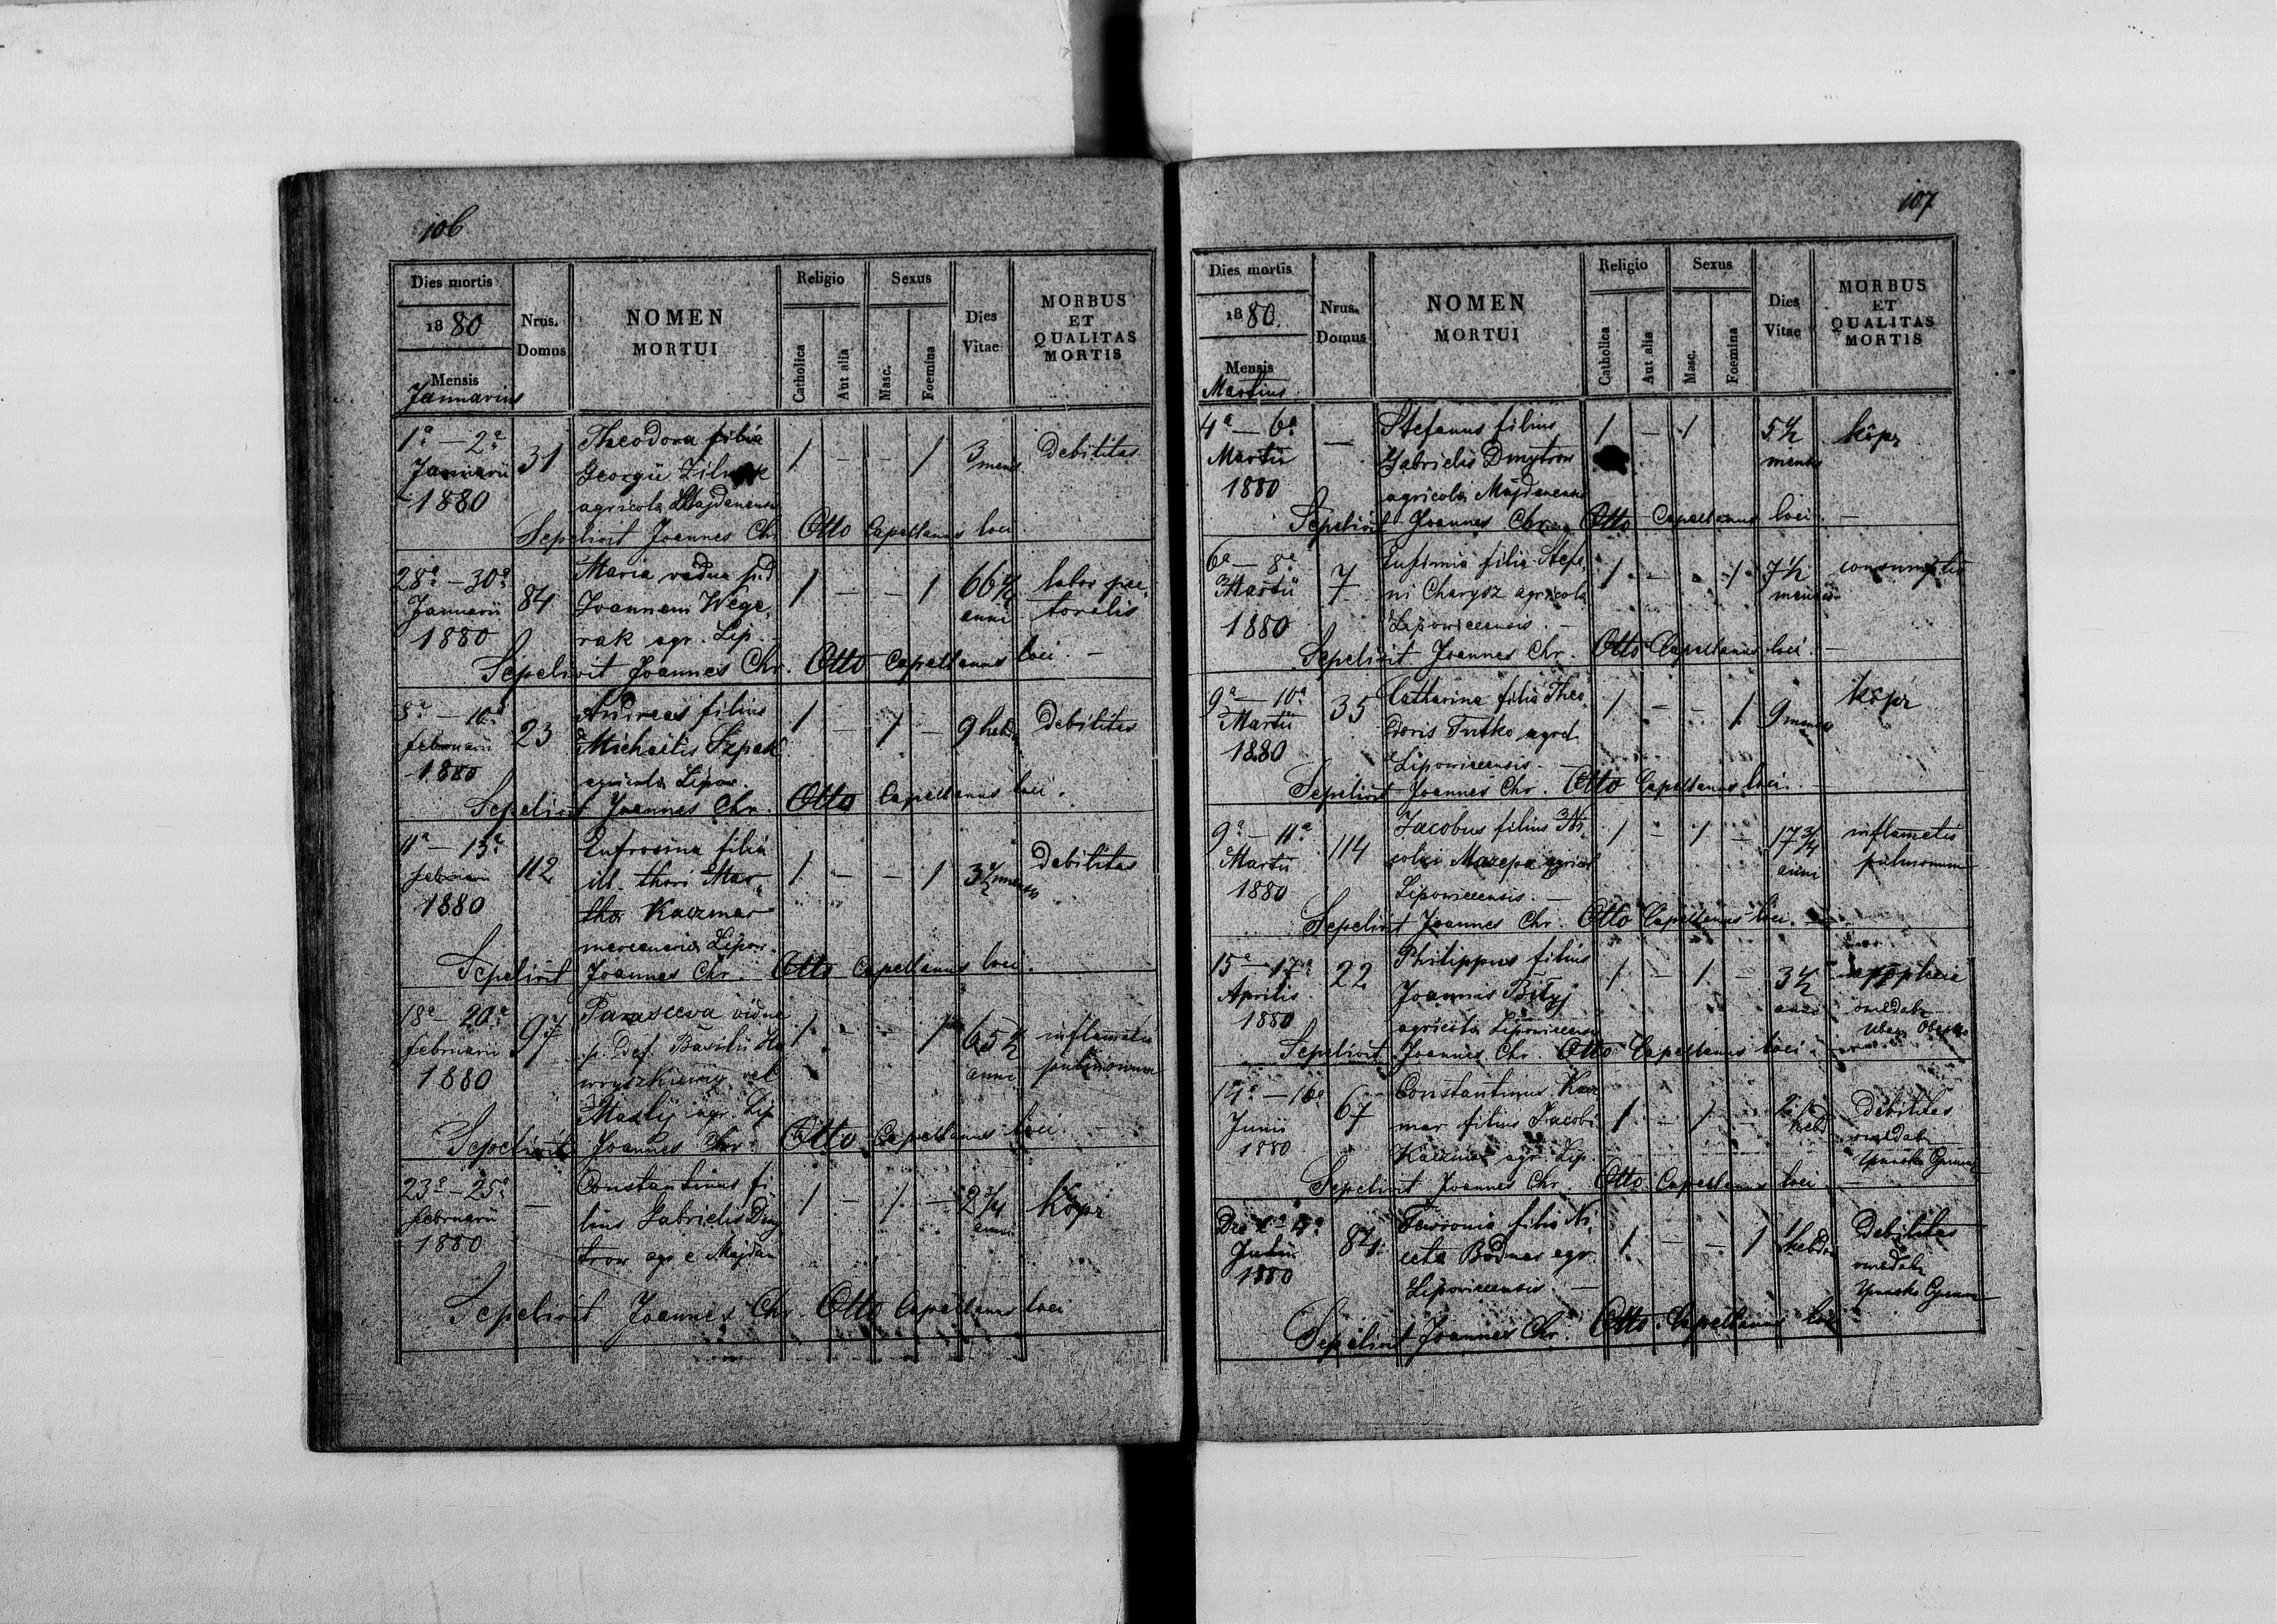 106
Dies mortis
1880
Mensis
Januarius
Nrus. Domus
NOMEN
MORTUI
Religio
Catholica
Aut alia
Sexus
Masc.
Foemina
Dies
Vitae
MORBUS
ET
QUALITAS
MORTIS
1ª — 2ª Januarii 1880
31
Theodora filia
Georgii
agricola Majdanensis
1 — — 1
3 mens
Debilitas
Sepelivit Joannes Chr. Otto Capellanus loci
28ª — 30ª Januarii 1880
84
Maria vidua p.d
Joannem Wege,
rak agr. Lip. —
1 — — 1
66 ½ anni
labor pec,
toralis
Sepelivit Joannes Chr. Otto Capellanus loci. —
8ª — 10ª februarii 1880
23
Andreas filius
Michaelis Szpak
agricola Lipow.
1 — 1 —
9 hebd
Debilitas
Sepelivit Joannes Chr. Otto Capellanus loci.
11ª — 13ª februarii 1880
112
Eufrosina filia
ill. thori Mar,
tha Kaczmar
mercenaria Lipow.
1 — — 1
3 ½ menses
Debilitas
Sepelivit Joannes Chr. Otto Capellanus loci.
18ª — 20ª februarii 1880
97
Parasceva vidua
p. Def. Basilii Ha
wryszkiewy vel
agr. Lip
1 — 1
65 ½ anni
inflamatio
pulmonum
Sepelivit Joannes Chr. Otto Capellanus loci. —
23ª — 25ª februarii 1880
—
Constantinus fi
lius Gabrielis Dmy
trow agr e Majdan
1 — 1 —
2 ¾ anni
Kôpr
Sepelivit Joannes Chr. Otto Capellanus loci
107
Dies mortis
1880.
Mensis
Martius.
Nrus. Domus
NOMEN
MORTUI
Religio
Catholica
Aut alia
Sexus
Masc.
Foemina
Dies
Vitae
MORBUS
ET
QUALITAS
MORTIS
4ª — 6ª Martii 1880
—
Stefanus filius
Gabrielis Dmytrow
agricola Majdanensis
1 — 1
5 ½ menses
kôpr
Sepelivit Joannes Chr. Otto Capellanus loci. —
6ª — 8ª Martii 1880
7
Eufimia filia Stefa,
ni Charysz agricola
Lipowicensis. —
1 — 1
7 ½ menses
consumptio
Sepelivit Joannes Chr. Otto Capellanus loci. —
9ª — 10ª Martii 1880
35
Catharina filia Theo,
doris Tutko agrcl.
Lipowicensis. —
1 — — 1
9 menses
kôpr
Sepelivit Joannes Chr. Otto Capellanus loci. —
9ª — 11ª Martii 1880
114
Jacobus filius Ni,
colai Mazepa agricol
Lipowicensis. —
1 — 1 —
17 ¾ anni
inflamatio
pulmonum
Sepelivit Joannes Chr. Otto Capellanus loci. —
15ª — 17ª Aprilis 1880
22
Philippus filius
Joannis Bilyj
agricola Lipowicensis
1 — 1 —
3 ½
apoplexia
Sepelivit Joannes Chr. Otto Capellanus loci. —
14ª — 16ª Junii 1880
67
Constantinus Kacz
mar filius Jacobi
Kaczmar agr Lip.
1 — 1 —
hebd
Debilitas
Sepelivit Joannes Chr. Otto Capellanus loci. —
1880
84
filia Ni
ceta Bodnar agr.
Lipowicensis. —
1 — — 1
1 hebd
Debilitas
Sepelivit Joannes Chr. Otto Capellanus loci